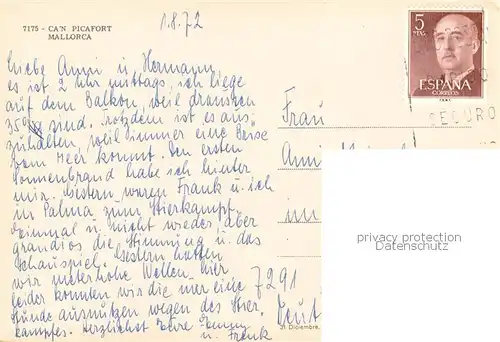 7175 - CA'N PICAFORT
MALLORCA
1.8.72
Liebe Anni u. Hermann,
es ist 2 Uhr mittags, ich liege
auf dem Balkon, weil draußen
35° sind. Trotzdem ist es aus-
zuhalten, weil immer eine Brise
vom Meer kommt. Den ersten
Sonnenbrand habe ich hinter
mir. Gestern waren Frank u. ich
in Palma zum Stierkampf.
Einmal u. nicht wieder, aber
grandios die Stimmung u. das
Schauspiel. Gestern hatten
wir meterhohe Wellen, hier
leider konnten wir die nur eine
Stunde ausnutzen wegen des Stier-
kampfes. Herzlichst Eure
u. Frank
5
PTAS
ESPAÑA
CORREOS
F.N.M.T.
SEGURO
Frau
7291
31 Diciembre,
privacy protection
DELCAMPE